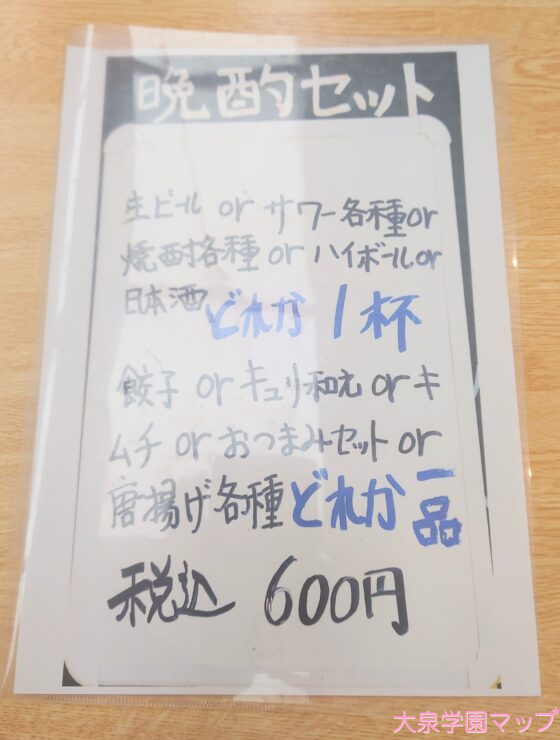 晩酌セット
生ビール or サワー各種or
焼酎各種 or ハイボールor
日本酒 どれか1杯
餃子 or キュリ和え or キ
ムチ or おつまみセット or
唐揚げ各種どれか一品
税込 600円
大泉学園マップ